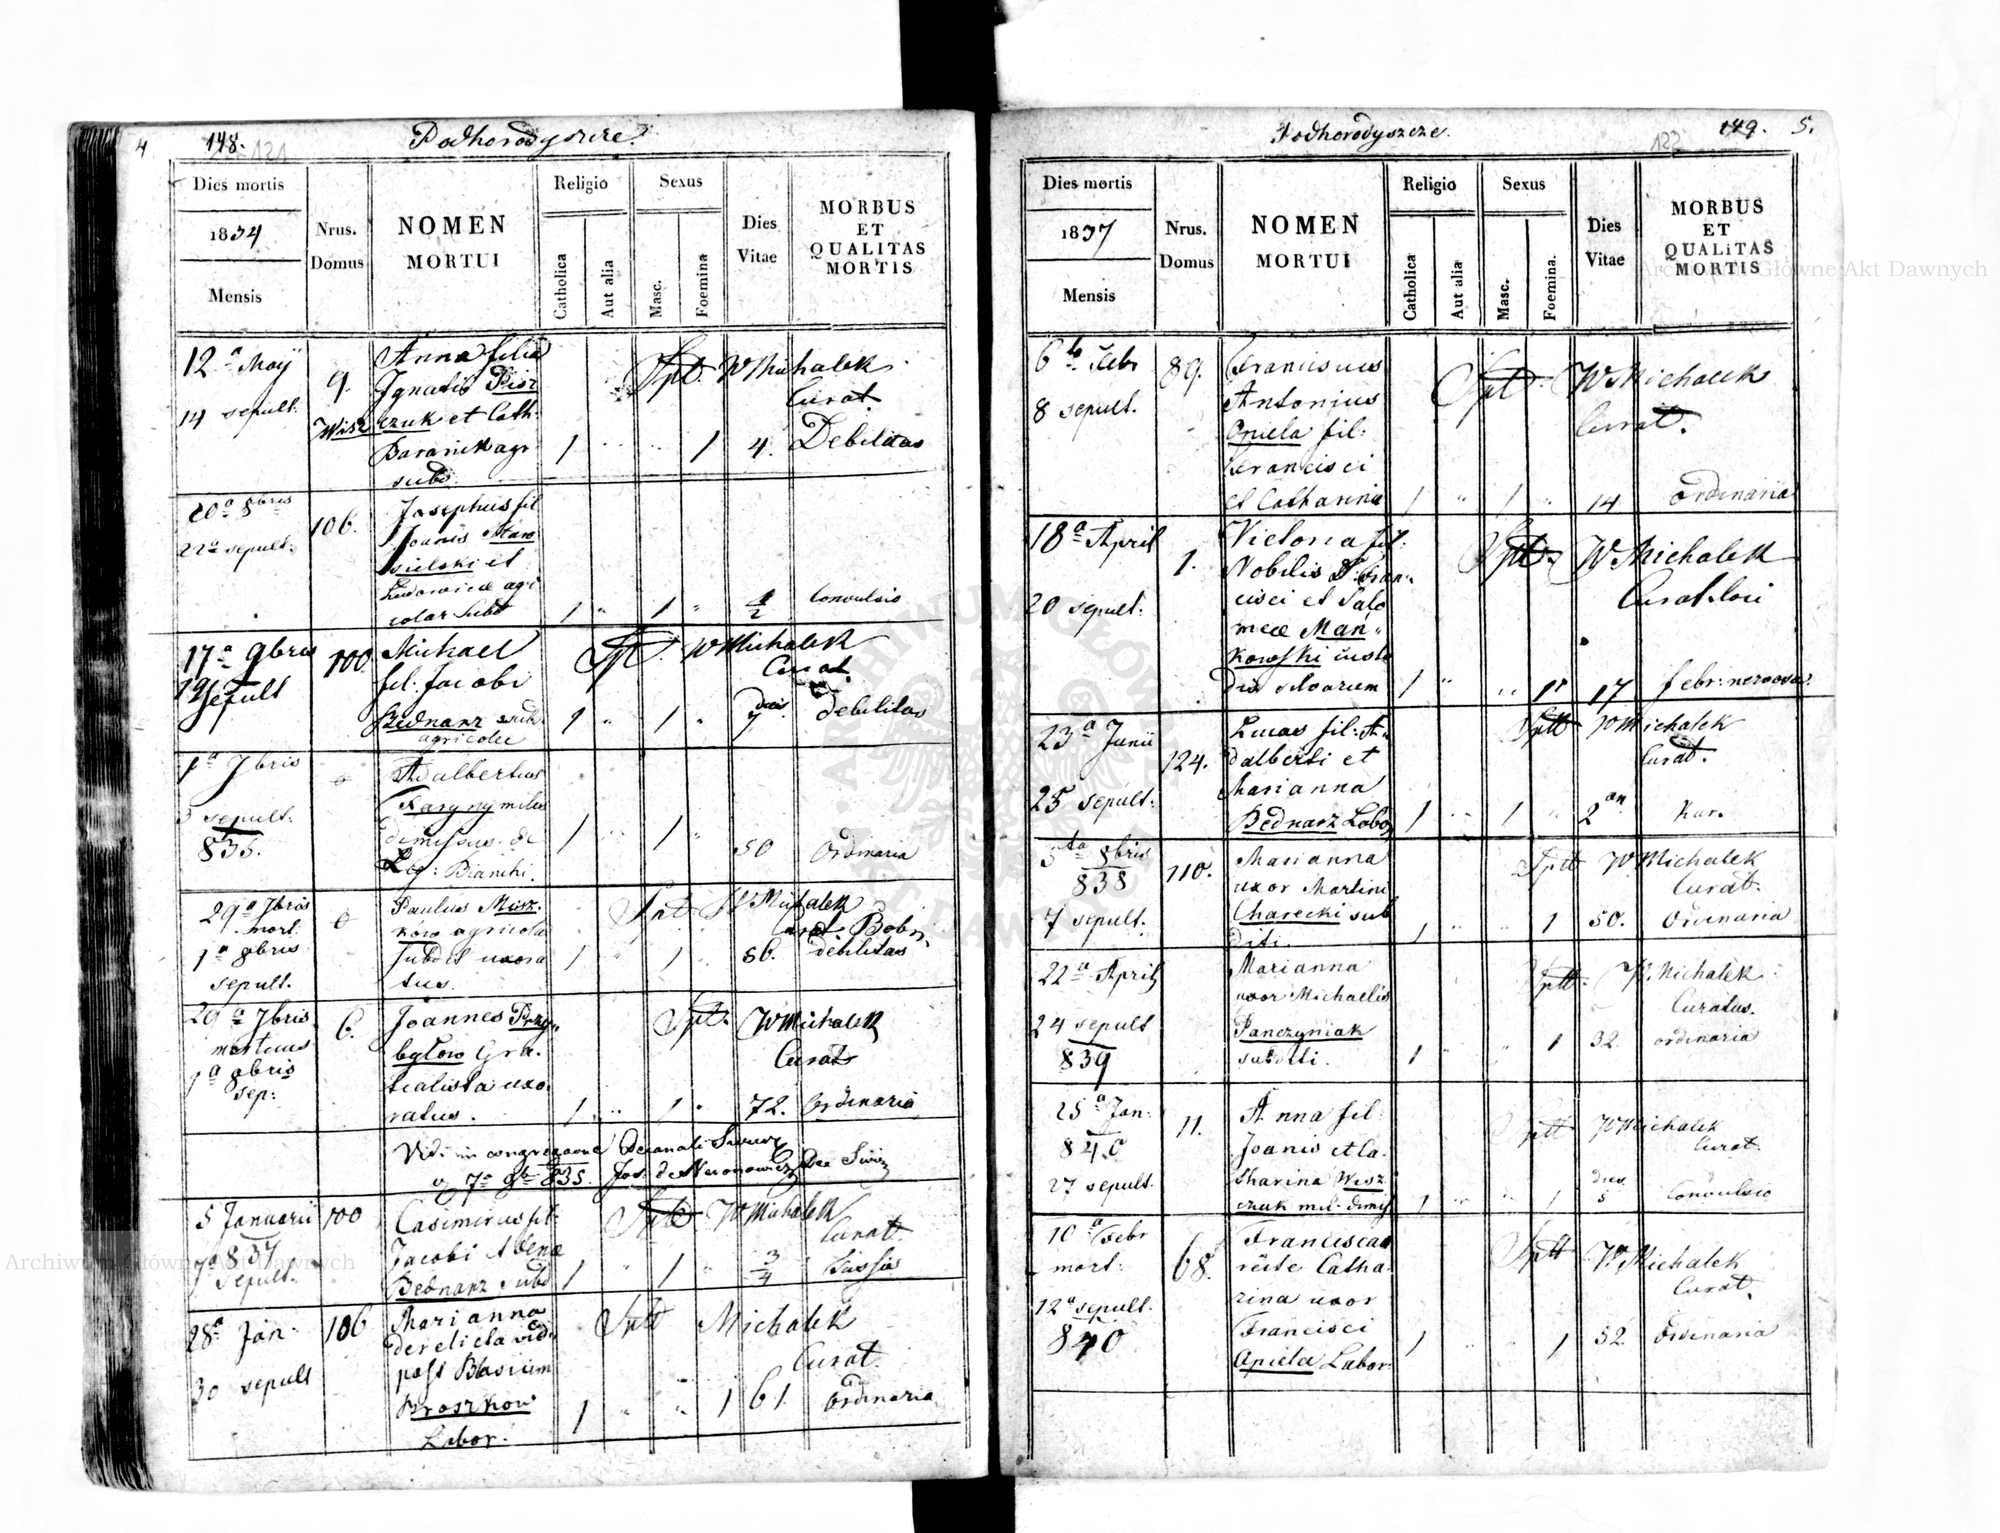 4 148. Podhorodyszcze.
121
Dies mortis
1834
Mensis
Nrus.
Domus
NOMEN
MORTUI
Religio
Catholica
Aut alia
Sexus
Masc.
Foemina
Dies
Vitae
MORBUS
ET
QUALITAS
MORTIS
12a Maij
14 sepult.
9
Wisz
Anna filia
Ignatii Pisz
czuk et Cath.
Baranik agr.
subd.
Spt. W Michalek
Curat.
1 " " 1 4. Debilitas
20a 8bris
22a sepult.
106.
Josephus fil
Joanis Staro
sielski et
Ludowicae agri
colar Subd
1 " 1 " 1/2 Convulsio
17a 9bris
19 sepult
100
Michael
fil. Jacobi
Bednarz subd.
agricolae
Spt. W Michalek
Curat.
1 " 1 " dies 7 debilitas
1a 7bris
3 sepult.
835.
0
Adalbertus
miles
dimissus de
Leg: Bianchi.
1 " 1 " 50 Ordinaria
29a 7bris
mort.
1a 8bris
sepult.
0
Paulus Misz
kow agricola
subdit uxora
tus.
Spt W Michalek
Curat. Bobr.
1 " 1 86. debilitas
29a 7bris
mortuus
1a 8bris
sep:
6.
Joannes Przy
bylow Gra
tialista uxo
ratus.
Spt. W Michalek
Curat
1 " 1 " 72. Ordinaria
Vidi in congregaone Decanali
7a 9br 835.
5 Januarii
837
7a sepult.
100
Casimirus fil.
Jacobi
Bednarz subd
Spt W Michalek
Curat.
1 " 1 " 3/4 Tussis
28a Jan.
30 sepult
106
Marianna
derelicta vid
post Blasium
Kroszkow
Labor.
Sptt Michalek
Curat.
1 " " 1 61. Ordinaria
Podhorodyszcze. 149. 5.
122
Dies mortis
1837
Mensis
Nrus.
Domus
NOMEN
MORTUI
Religio
Catholica
Aut alia
Sexus
Masc.
Foemina.
Dies
Vitae
MORBUS
ET
QUALITAS
MORTIS
6ta Febr
8 sepult.
89.
Franciscus
Antonius
Opiela fil:
Francisci
et Catharina
Spt. W Michalek
Curat.
1 " 1 " 14 Ordinaria
18a April
20 sepult:
1.
Victoria fil:
Nobilis D. Fran
cisci et Salo
meae Man
kowski custo
dis silvarum
Spt. W Michalek
Curat. loci
1 " " 1 17 febr: nervosa.
23a Junii
25 sepult:
124.
Lucas fil: A
dalberti et
Marianna
Bednarz Labo
Sptt W Michalek
Curat.
1 " 1 " 2 an
5ta 8bris
838
7 sepult.
110.
Marianna
uxor Martini
Charecki sub
diti.
Sptt W Michalek
Curat.
1 " " 1 50. Ordinaria
22a April
24 sepult
839
Marianna
uxor Michaelis
Panczyniak
subditi.
Sptt. W. Michalek
Curatus.
1 " " 1 32. ordinaria
25a Jan:
840
27 sepult.
11.
Anna fil.
Joanis et Ca
tharina Wisz
czuk mil. dimis
Sptt W Michalek
Curat.
1 " " 1 dies 5 Convulsio
10a Febr
mort:
12a sepult.
840
68.
Francisca
recte Catha
rina uxor
Francisci
Opiela Labor.
Sptt W. Michalek
Curat.
1 " 1 52 Ordinaria
ARCHIWUM GŁÓWNE AKT DAWNYCH
Archiwum Główne Akt Dawnych
Archiwum Główne Akt Dawnych